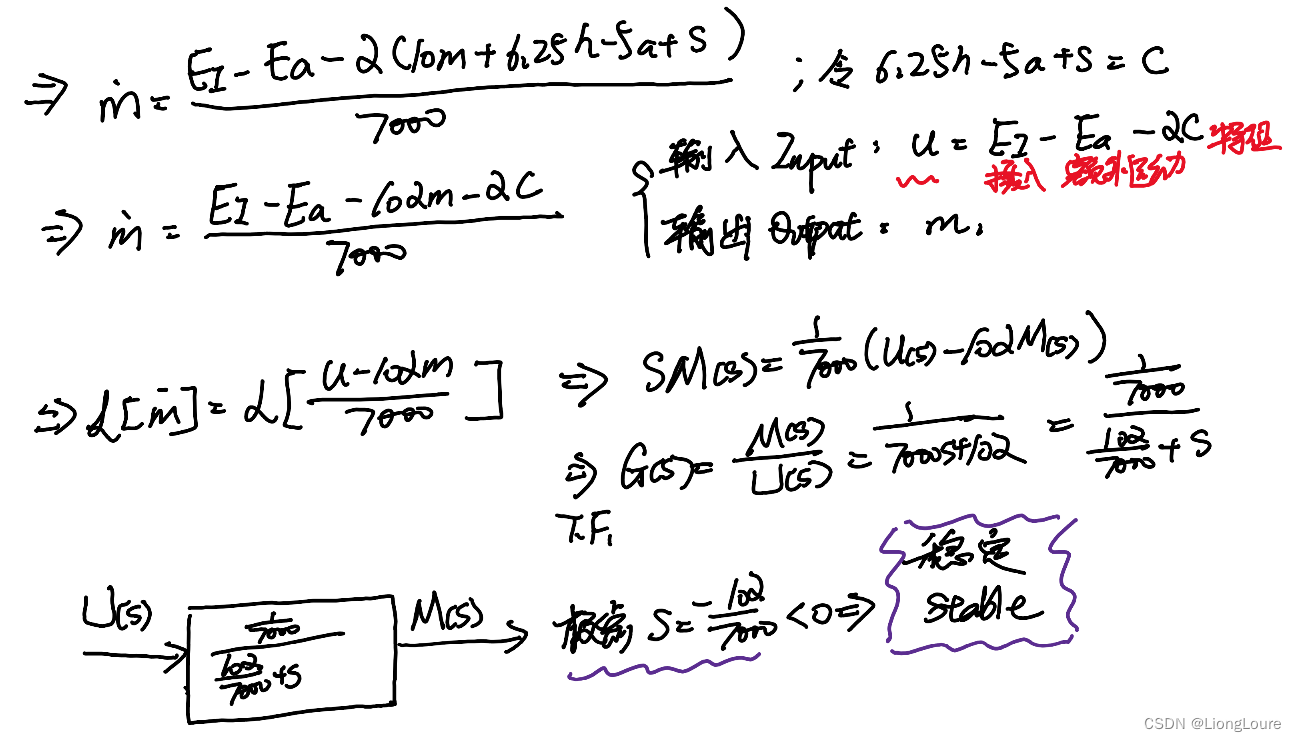 ⇒ ṁ = (E_I - Ea - 2(10m + 6.25h - 5a + S)) / 7000 ; 令 6.25h - 5a + S = C
输入 Input: u = E_I - Ea - 2C
摄入 额外运动 特征
⇒ ṁ = (E_I - Ea - 102m - 2C) / 7000
输出 Output: m.
⇒ L[ṁ] = L[(u - 102m) / 7000] ⇒ SM(s) = 1/7000 (U(s) - 102M(s))
⇒ G(s) = M(s)/U(s) = 1/(7000S+102) = (1/7000) / (102/7000 + S)
T.F.
U(s) (1/7000) / (102/7000 + S) M(s) 极点 S = -102/7000 < 0 ⇒ 稳定
stable
CSDN @LiongLoure